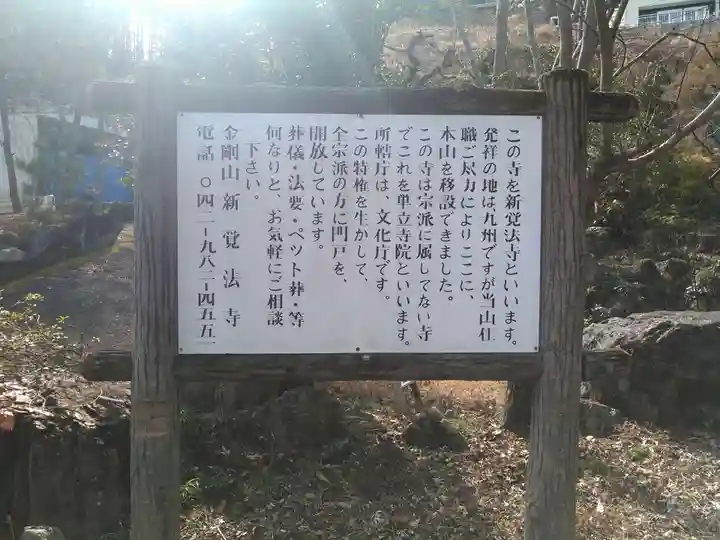 この寺を新覚法寺といいます。
発祥の地は九州ですが当山仕
職ご尽力によりここに、
本山を移設できました。
この寺は宗派に属してない寺
でこれを単立寺院といいます。
所轄庁は、文化庁です。
この特権を生かして、
全宗派の方に門戸を、
開放しています。
葬儀・法要・ペット葬・等
何なりと、お気軽にご相談
下さい。
金剛山 新覚法寺
電話 〇四二ー九八二ー四五五一